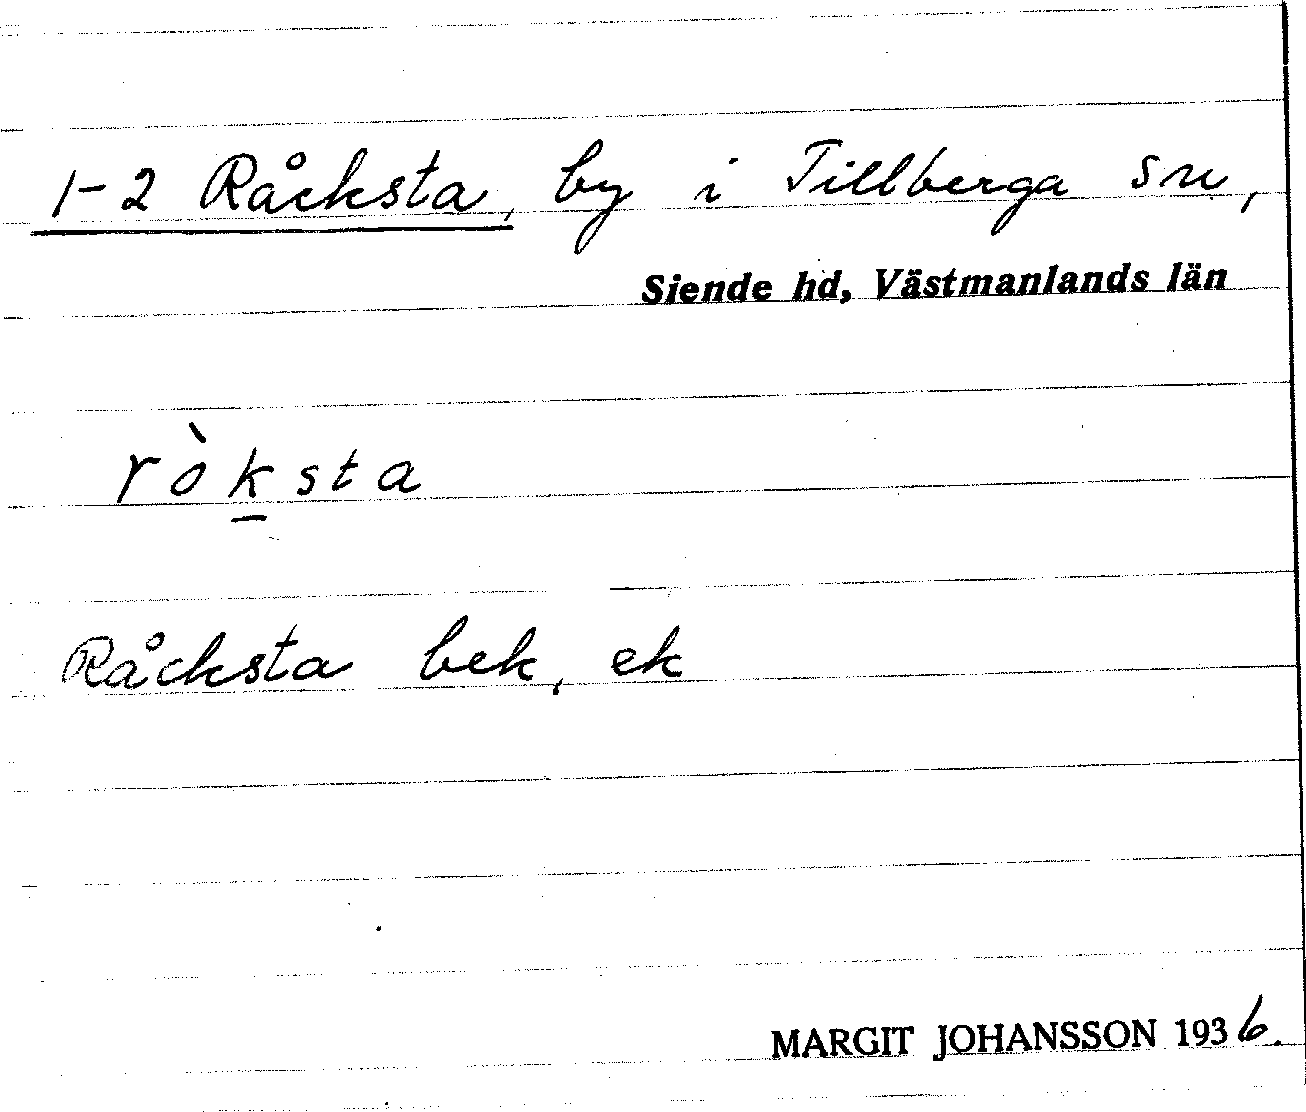 1-2 Råcksta, by i Tillberga sn,
Siende hd, Västmanlands län
ròksta
Råcksta bek, ek
MARGIT JOHANSSON 1936.